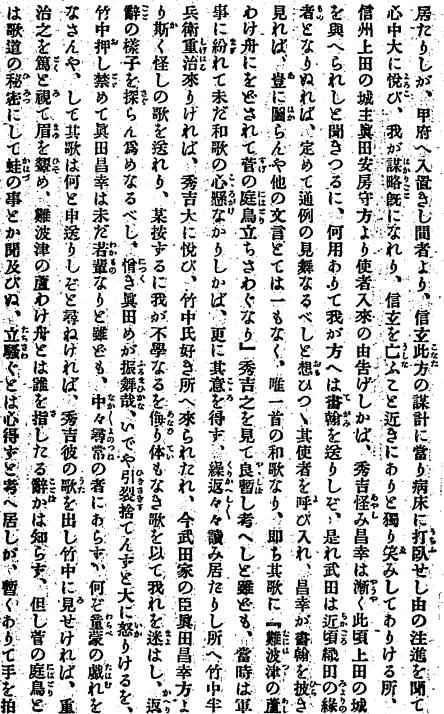 居たりしが、甲府へ入置きし間者より、信玄此方の謀計に當り病床に打臥せし由の注進を聞て
心中大に悅び、我が謀略旣になれり、信玄を亡ふこと近きにありと獨り笑みしてありける所、
信州上田の城主眞田安房守方より使者入來の由告げしかば、秀吉怪み昌幸は漸く此頃上田の城
を與へられしと聞きつるに、何用ありて我が方へは書翰を送りしぞ、是れ武田は近頃織田の緣
者となりぬれば、定めて通例の見舞なるべしと想ひつゝ其使者を呼び入れ、昌幸が書翰を披き
見れば、豈に圖らんや他の文言とては一もなく、唯一首の和歌なり、卽ち其歌に『難波津の蘆
わけ舟にをどされて菅の庭鳥立ちさわぐなり』秀吉之を見て良暫し考へしと雖ども、當時は軍
事に紛れて未だ和歌の心懸なかりしかば、更に其意を得ず、繰返々々讀み居たりし所へ竹中半
兵衞重治來りければ、秀吉大に悅び、竹中氏好き所へ來られたれ、今武田家の臣眞田昌幸方よ
り斯く怪しの歌を送れり、某按ずるに我が不學なるを侮り体もなき歌を以て我れを迷はし、返
辭の樣子を探らん爲めなるべし、憎き眞田めが振舞哉、いでや引裂捨てんずと大に怒りけるを、
竹中押し禁めて眞田昌幸は未だ若輩なりと雖ども、中々尋常の者にあらず、何ぞ童蒙の戲れを
なさんや、して其歌は何と申送りしぞと尋ねければ、秀吉彼の歌を出し竹中に見せければ、重
治之を篤と視て眉を顰め、難波津の蘆わけ舟とは誰を指したる辭かは知らず、但し菅の庭鳥と
は歌道の秘密にして蛙の事とか聞及びぬ、立騷ぐとは心得ずと考へ居しが、暫くありて手を拍